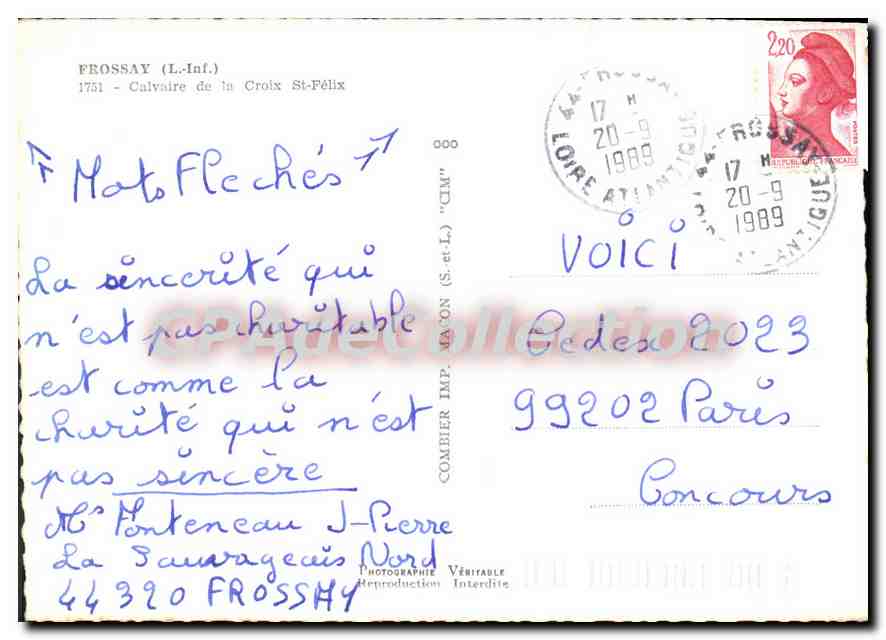 FROSSAY (L.-Inf.)
1751 - Calvaire de la Croix St-Félix
Mots Flechés
La sincerité qui
n'est pas charitable
est comme la
charité qui n'est
pas sincère
Mr Monteneau J-Pierre
La Sauvageais Nord
44320 FROSSAY
000
COMBIER IMP. MACON (S.-et-L.) "CIM"
PHOTOGRAPHIE VÉRITABLE
Reproduction Interdite
44-FROSSAY
17 H
20-9
1989
LOIRE ATLANTIQUE
44-FROSSAY
17 H
20-9
1989
LOIRE ATLANTIQUE
2,20
POSTES
REPUBLIQUE FRANÇAISE
VOICI
Cedex 2023
99202 Paris
Concours
CPAdeCollection